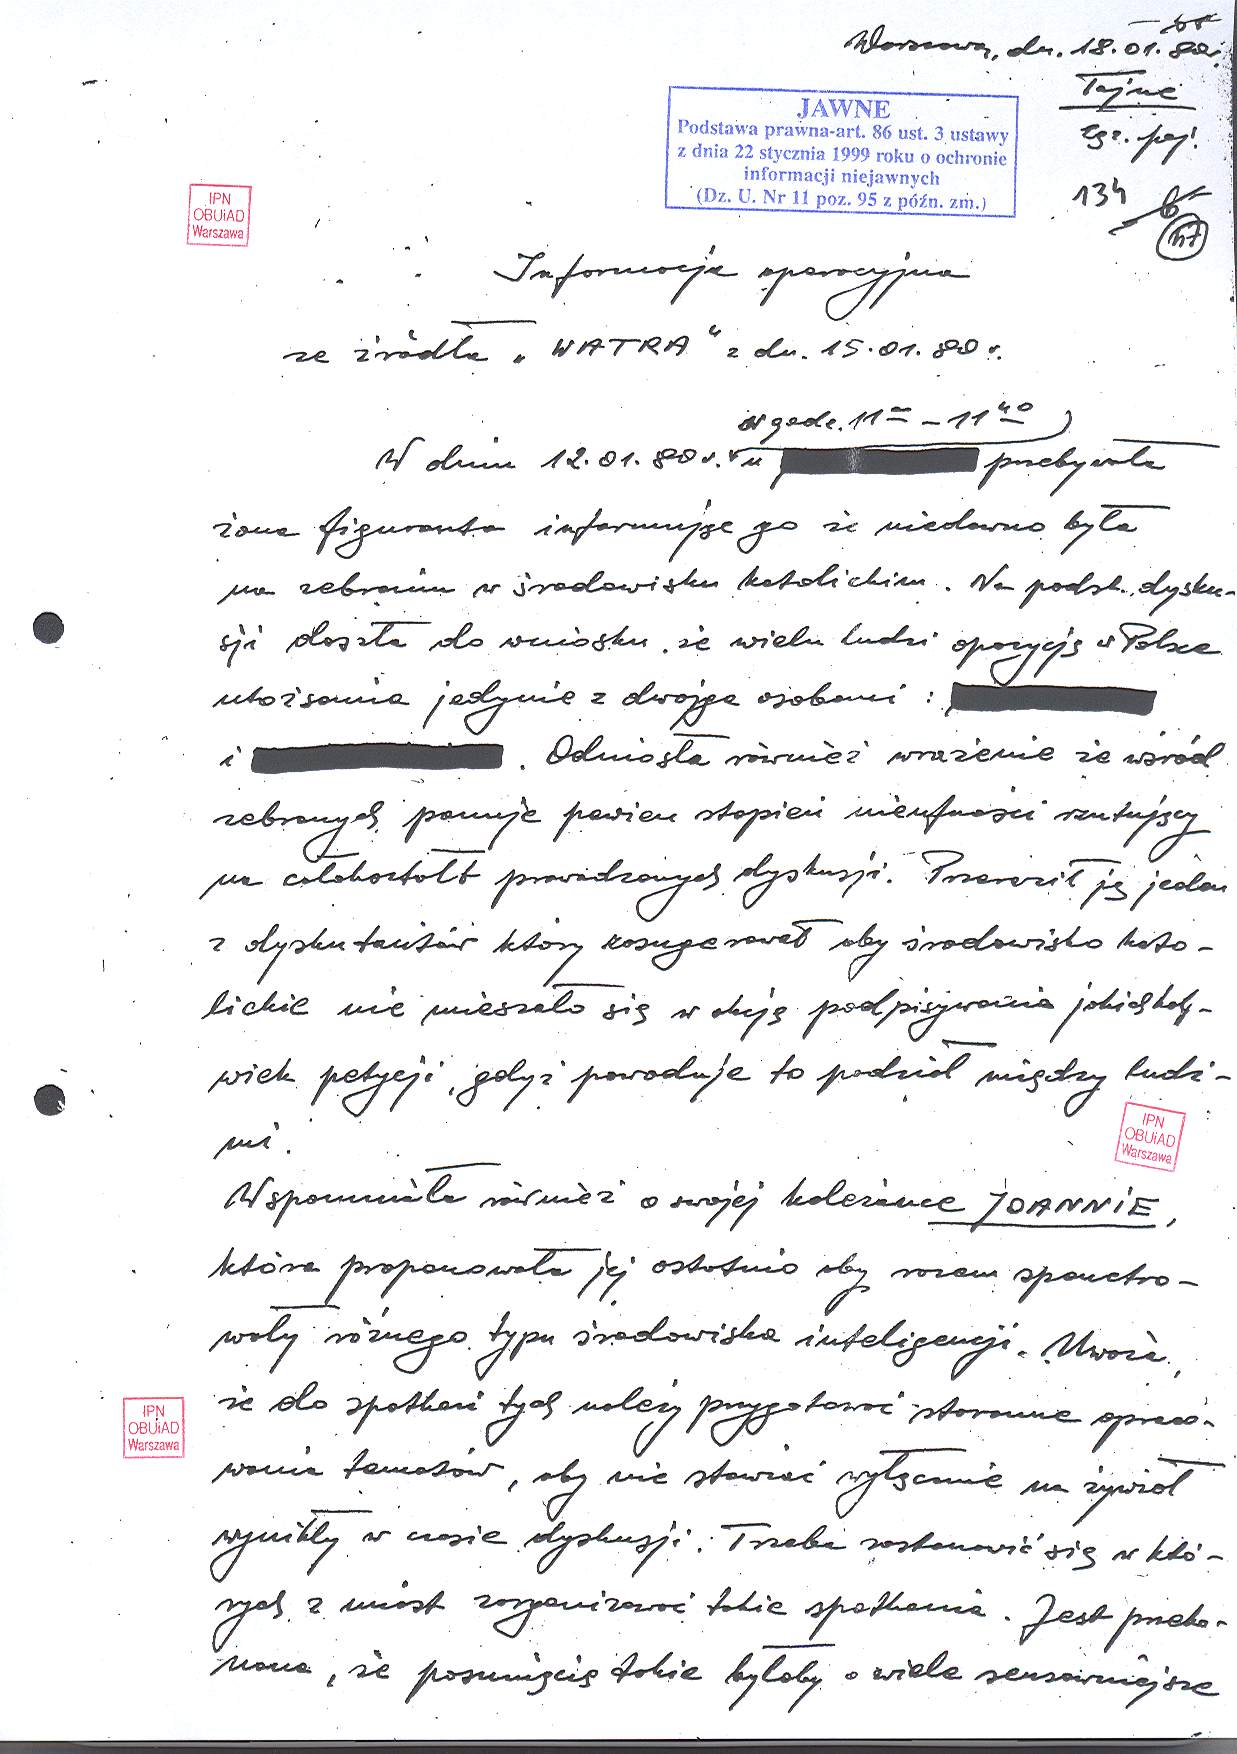 Warszawa, dn. 18.01.80r.
Tajne
egz. poj.
134
47
JAWNE
Podstawa prawna-art. 86 ust. 3 ustawy
z dnia 22 stycznia 1999 roku o ochronie
informacji niejawnych
(Dz. U. Nr 11 poz. 95 z późn. zm.)
IPN
OBUiAD
Warszawa
Informacja operacyjna
ze źródła „WATRA" z dn. 15.01.80r.
w godz. 11⁰⁰ – 11⁴⁰
W dniu 12.01.80r. u przebywała
żona figuranta informując go że niedawno była
na zebraniu w środowisku katolickim. Na podst. dysku-
sji doszła do wniosku, że wielu ludzi opozycję w Polsce
utożsamia jedynie z dwojga osobami :
i . Odniosła również wrażenie że wśród
zebranych panuje pewien stopień nieufności rzutujący
na całokształt prowadzonych dyskusji. Przeraził ją jeden
z dyskutantów który zasugerował aby środowisko kato-
lickie nie mieszało się w akcję podpisywania jakichkol-
wiek petycji, gdyż powoduje to podział między ludź-
mi.
IPN
OBUiAD
Warszawa
Wspomniała również o swojej koleżance JOANNIE,
która proponowała jej ostatnio aby razem spenetro-
wały różnego typu środowiska inteligencji. Uważa,
że do spotkań tych należy przygotować staranne opraco-
IPN
OBUiAD
Warszawa
wania tematów, aby nie stawiać wyłącznie na żywioł
wynikły w czasie dyskusji. Trzeba zastanowić się w któ-
rych z miast zorganizować takie spotkania. Jest przeko-
nana, że posunięcie takie byłoby o wiele sensowniejsze